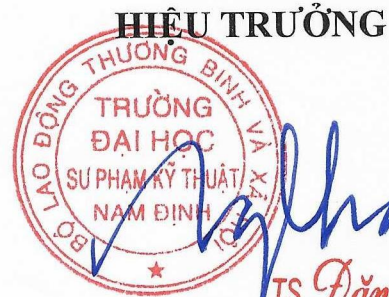 HIỆU TRƯỞNG
BỘ LAO ĐỘNG THƯƠNG BINH VÀ XÃ HỘI
TRƯỜNG
ĐẠI HỌC
SƯ PHẠM KỸ THUẬT
NAM ĐỊNH
TS